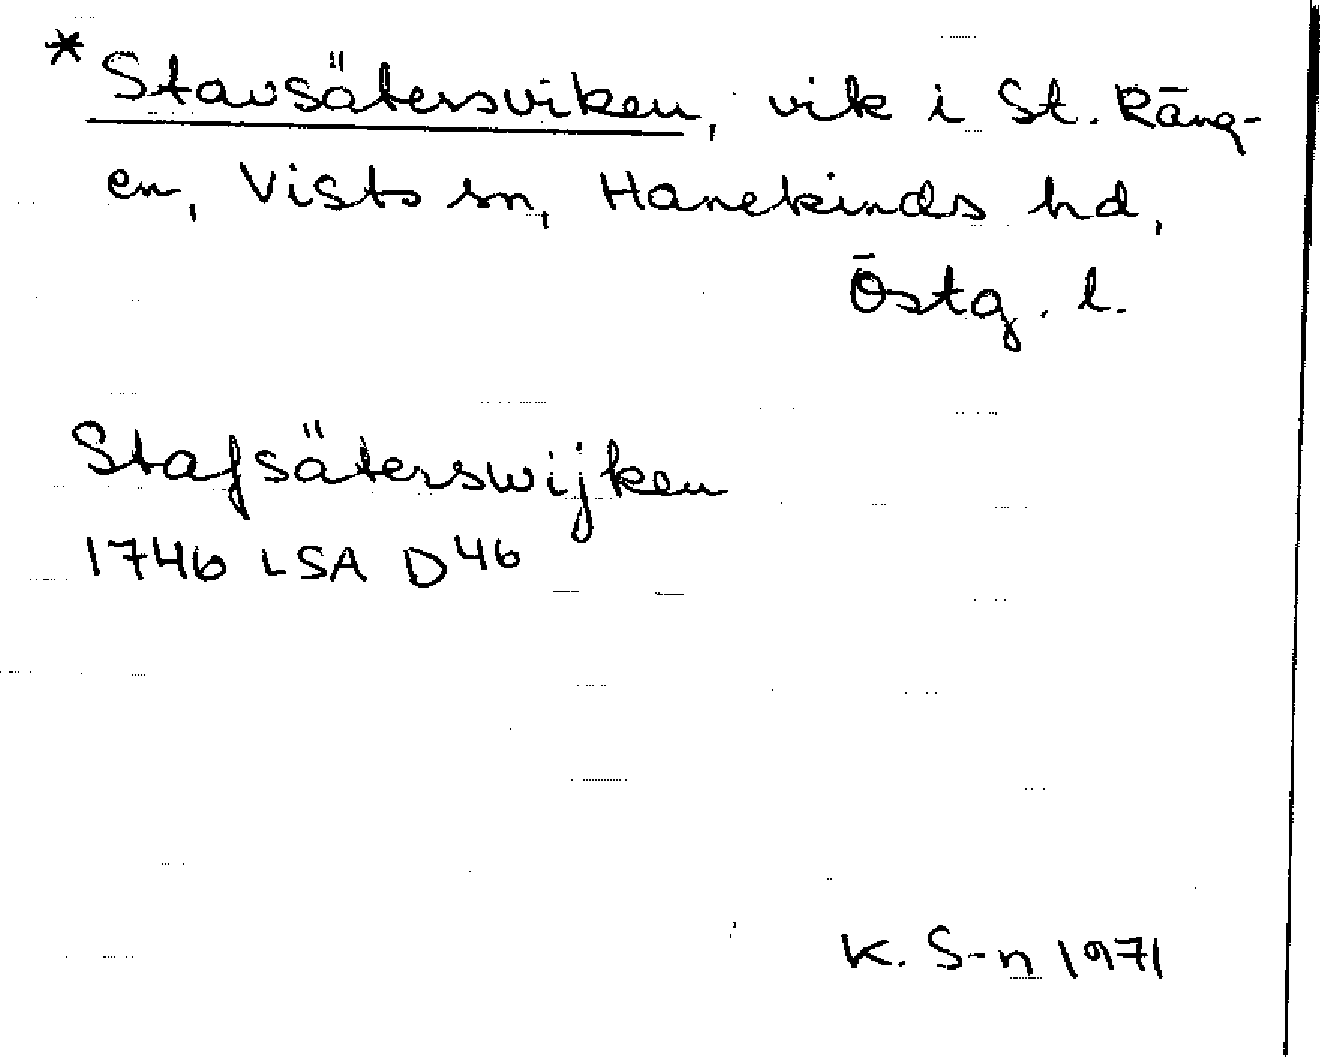 * Stavsätersviken, vik i St. Räng-
en, Vists sn, Hanekinds hd,
Östg. l.
Stafsäterswijken
1746 LSA D46
K. S-n 1971